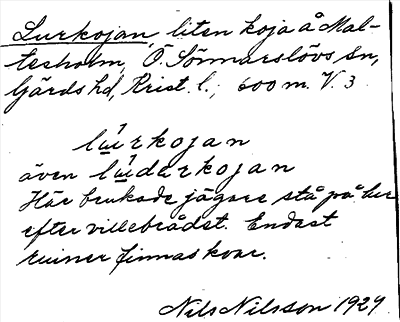 Lurkojan, liten koja å Mal-
tesholm, Ö. Sönnarslövs sn,
Gärds hd, Krist. l., 600 m. V. 3.
lúrkojan
även lúdərkojan
Här brukade jägare stå på lur
efter villebrådet. Endast
ruiner finnas kvar.
Nils Nilsson 1929